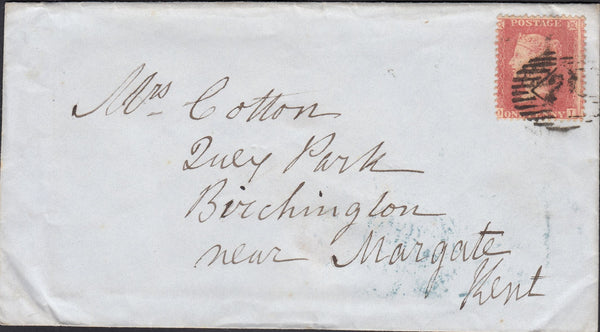 POSTAGE
Mrs Cotton
Quey Park
Birchington
near Margate
Kent